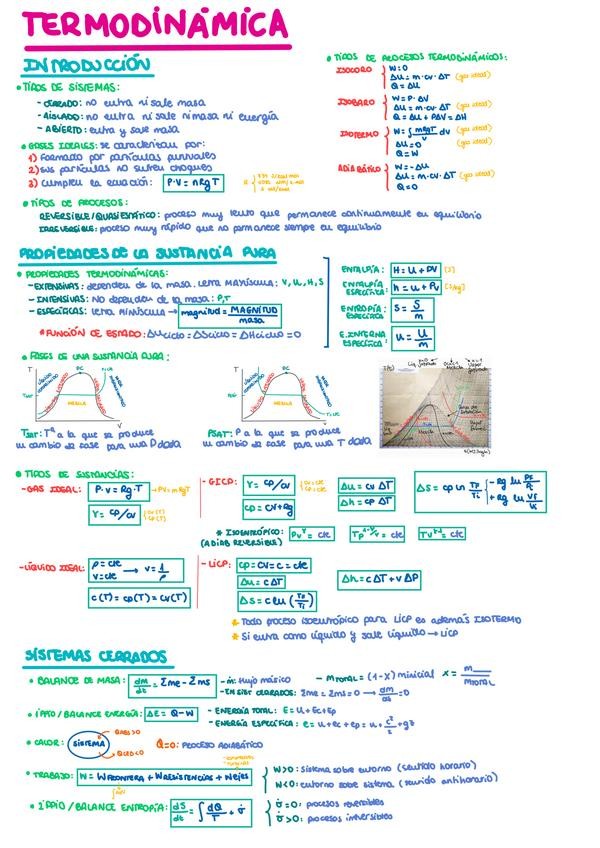 TERMODINÁMICA
INTRODUCCIÓN
• TIPOS DE SISTEMAS:
- CERRADO: no entra ni sale masa
- AISLADO: no entra ni sale ni masa ni energía
- ABIERTO: entra y sale masa
• GASES IDEALES: se caracterizan por:
1) Formado por partículas puntuales
2) Sus partículas no sufren choques
3) Cumplen la ecuación: P·V = nRgT
• TIPOS DE PROCESOS:
REVERSIBLE/QUASIESTÁTICO: proceso muy lento que permanece continuamente en equilibrio
IRREVERSIBLE: proceso muy rápido que no permanece siempre en equilibrio
• TIPOS DE PROCESOS TERMODINÁMICOS:
ISOCORO
W=0
ΔU = m·cv·ΔT (gas ideal)
Q = ΔU
ISOBARO
W=P·ΔV
ΔU = m·cv·ΔT (gas ideal)
Q = ΔU + PΔV = ΔH
ISOTERMO
W = ∫ mRgT/V dV (gas ideal)
ΔU = 0 (gas ideal)
Q = W
ADIABÁTICO
W = -ΔU
ΔU = m·cv·ΔT (gas ideal)
Q=0
PROPIEDADES DE LA SUSTANCIA PURA
• PROPIEDADES TERMODINÁMICAS:
- EXTENSIVAS: dependen de la masa. Letra MAYÚSCULA: V, U, H, S
- INTENSIVAS: NO dependen de la masa: P,T
- ESPECÍFICAS: letra MINÚSCULA → magnitud = MAGNITUD/masa
* FUNCIÓN DE ESTADO: ΔUciclo = ΔSciclo = ΔHciclo = 0
ENTALPÍA: H = U + PV [J]
ENTALPÍA ESPECÍFICA: h = u + Pv [J/kg]
ENTROPÍA ESPECÍFICA: s = S/m
E. INTERNA ESPECÍFICA: u = U/m
• FASES DE UNA SUSTANCIA PURA:
T
PC
MEZCLA
V
TSAT: Tª a la que se produce
un cambio de fase para una P dada
P
PC
MEZCLA
V
PSAT: P a la que se produce
un cambio de fase para una T dada
• TIPOS DE SUSTANCIAS:
- GAS IDEAL: P·v = Rg·T → PV = mRgT
γ = cp/cv
- GICP: γ = cp/cv
cp = cv + Rg
Δu = cv ΔT
Δh = cp ΔT
Δs = cp ln Tf/Ti { - Rg ln Pf/Pi
+ Rg ln Vf/Vi
* ISOENTRÓPICO: (ADIAB REVERSIBLE)
- LÍQUIDO IDEAL: ρ = cte
v = cte → v = 1/ρ
c(T) = cp(T) = cv(T)
- LICP: cp = cv = c = cte
Δu = c ΔT
Δs = c ln (Tf/Ti)
Δh = c ΔT + v ΔP
* Todo proceso isoentrópico para LICP es además ISOTERMO
* Si entra como líquido y sale líquido → LICP
SISTEMAS CERRADOS
• BALANCE DE MASA: dm/dt = Σme - Σms
- ṁ: flujo másico
- EN SIST CERRADOS: Σme = Σms = 0 → dm/dt = 0
- MTOTAL = (1-X) minicial
• 1º PPIO / BALANCE ENERGÍA: ΔE = Q - W
- ENERGÍA TOTAL: E = U + Ec + Ep
- ENERGÍA ESPECÍFICA: e = u + ec + ep = u + c²/2 + gz
• CALOR: SISTEMA
Q=0: PROCESO ADIABÁTICO
• TRABAJO: W = WFRONTERA + WRESISTENCIAS + WEJES
W>0: Sistema sobre entorno (sentido horario)
W<0: entorno sobre sistema (sentido antihorario)
• 2º PPIO / BALANCE ENTROPÍA: dS/dt = ∫ dQ/T + σ̇
σ̇=0: procesos reversibles
σ̇>0: procesos irreversibles